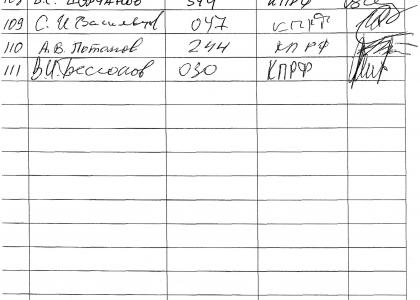 КПРФ
109 С. И Васильев 047 КПРФ
110 А.В. Потапов 244 КПРФ
111 В.И. Бессонов 030 КПРФ